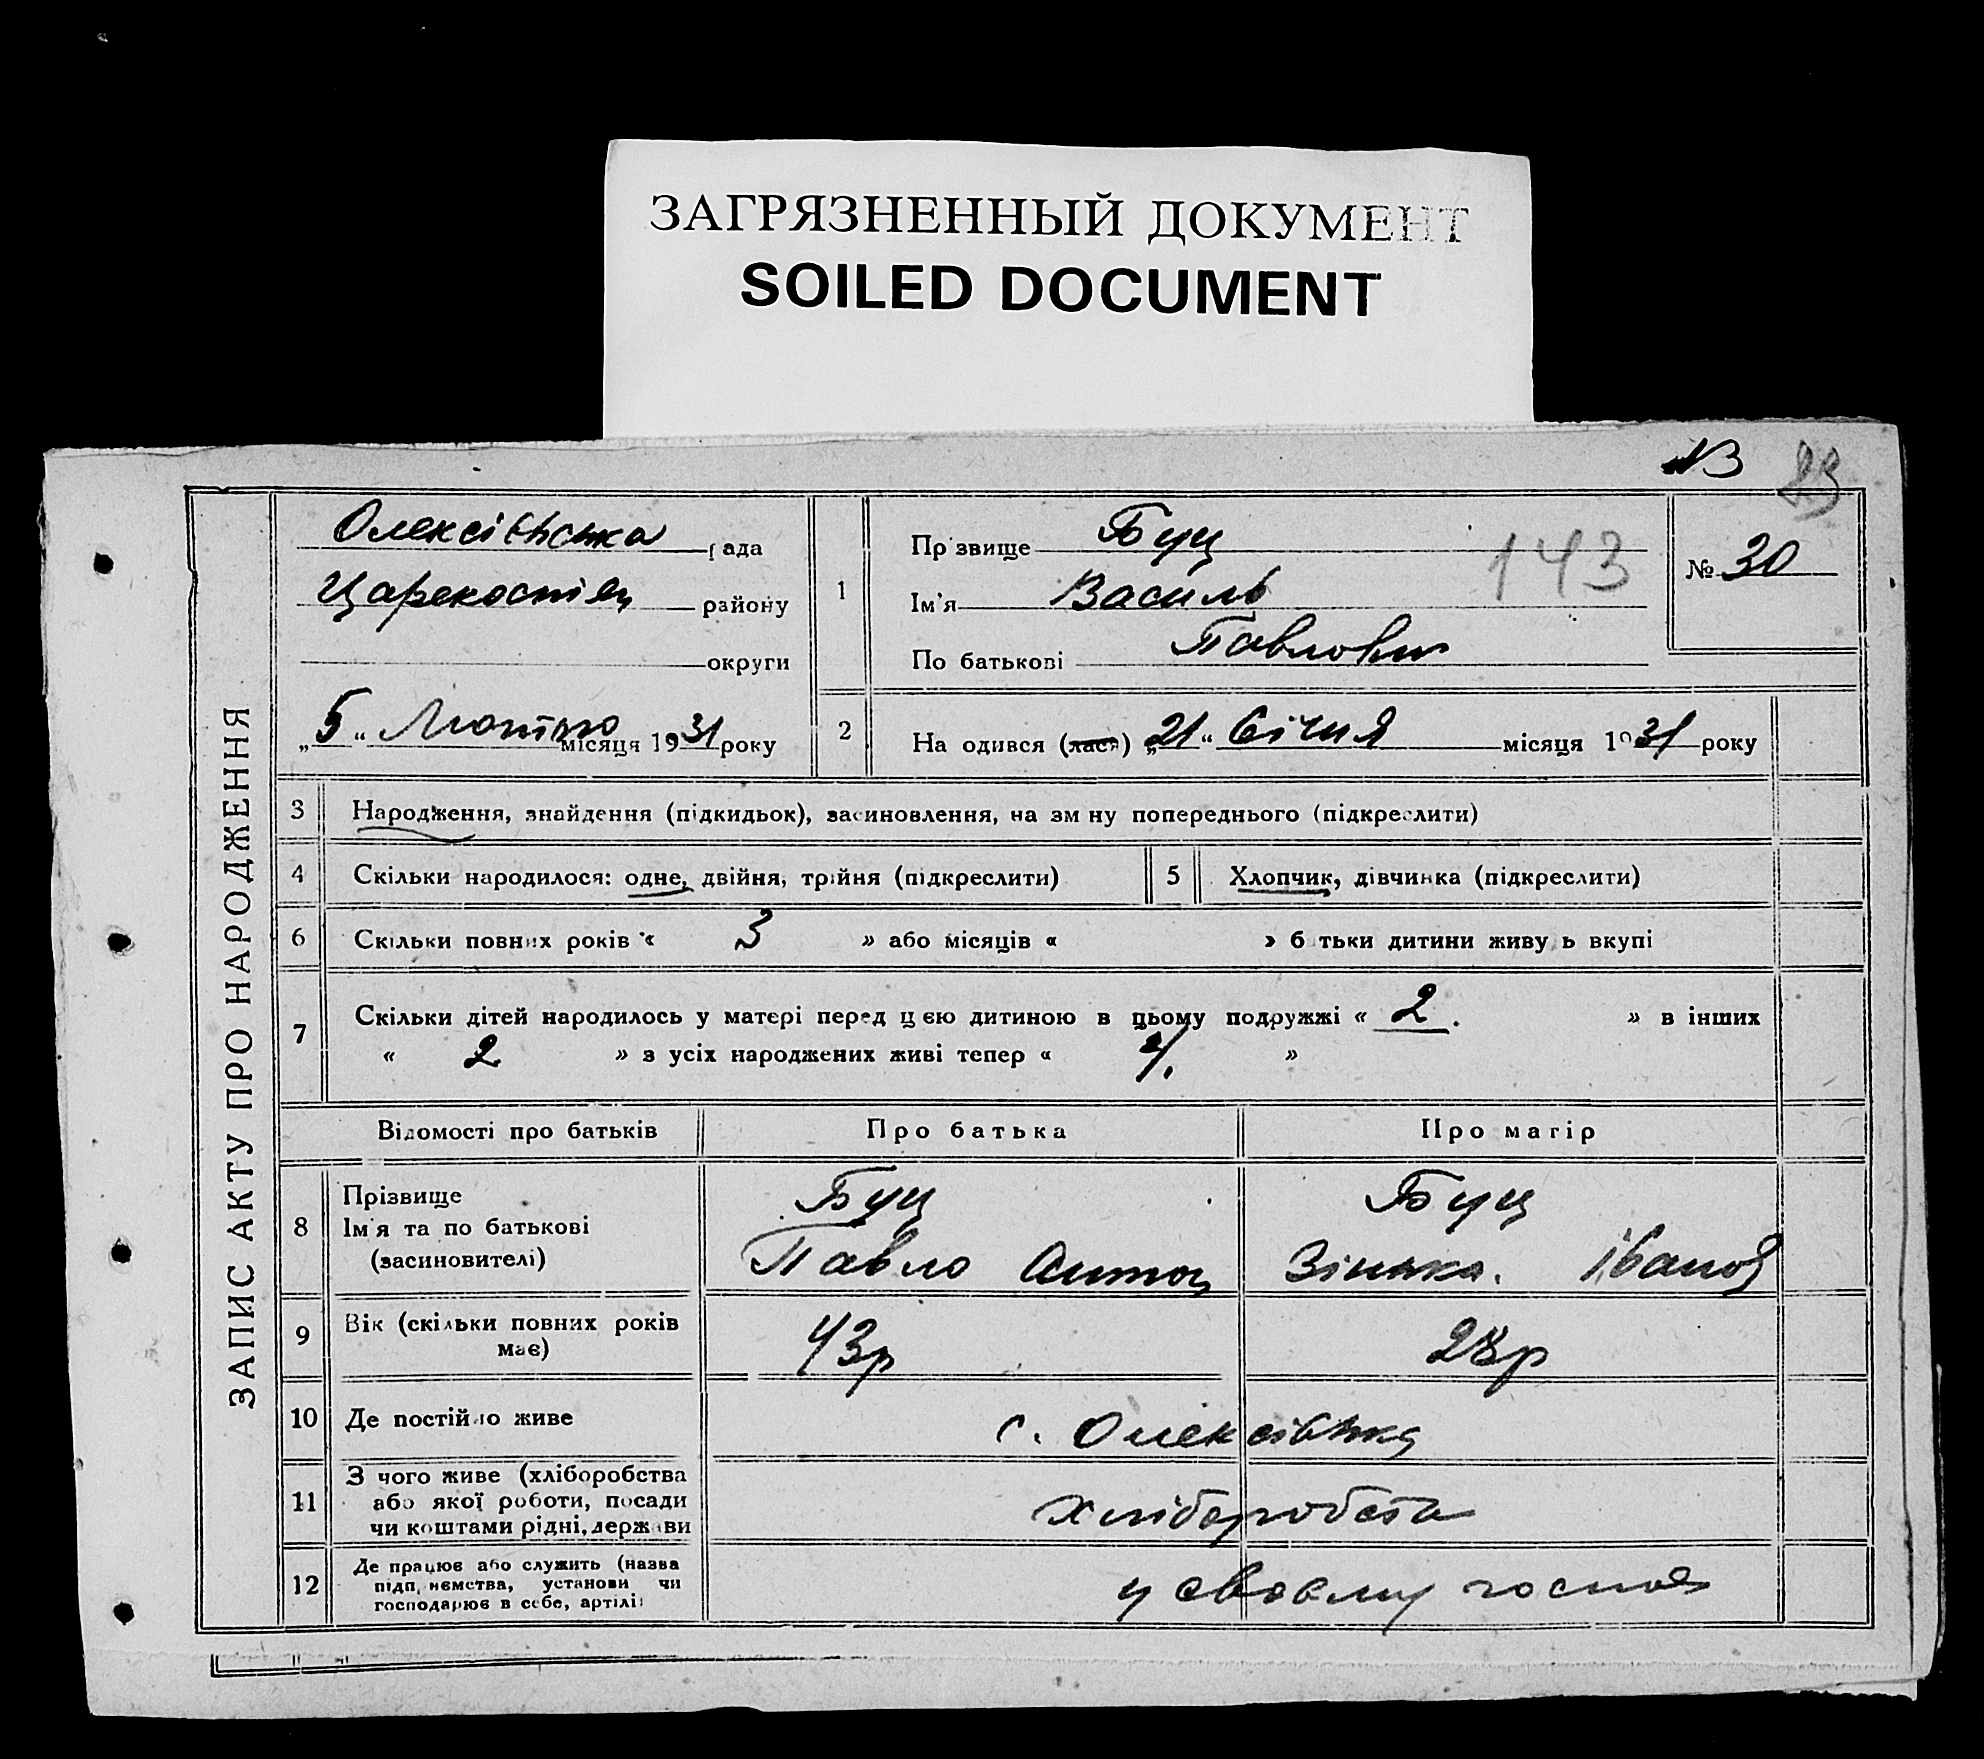 ЗАГРЯЗНЕННЫЙ ДОКУМЕНТ
SOILED DOCUMENT
29
ЗАПИС АКТУ ПРО НАРОДЖЕННЯ
Олексієвська рада
району
округи
„5“ Лютого місяця 1931 року
1
Прізвище Буц
143
Ім'я Василь
По батькові Павлович
№ 30
2
На одився (лася) „21“ Січня місяця 1931 року
3 Народження, знайдення (підкидьок), засиновлення, на зм ну попереднього (підкреслити)
4 Скільки народилося: одне, двійня, трійня (підкреслити)
5 Хлопчик, дівчинка (підкреслити)
6 Скільки повних років « 3 » або місяців « » б тьки дитини живу ь вкупі
7 Скільки дітей народилось у матері перед цією дитиною в цьому подружжі « 2. » в інших
« 2 » з усіх народжених живі тепер « 4. »
Відомості про батьків Про батька Про матір
8 Прізвище
Ім'я та по батькові
(засиновителі)
Буц
Павло Антон
Буц
Зінька. Іванов
9 Вік (скільки повних років
має)
43р 28р
10 Де постійно живе с. Олексієвка
11 З чого живе (хліборобства
або якої роботи, посади
чи коштами рідні, держави
хліборобства
12 Де працює або служить (назва
підп, иємства, установи чи
господарює в себе, артілі)
у своєму господ